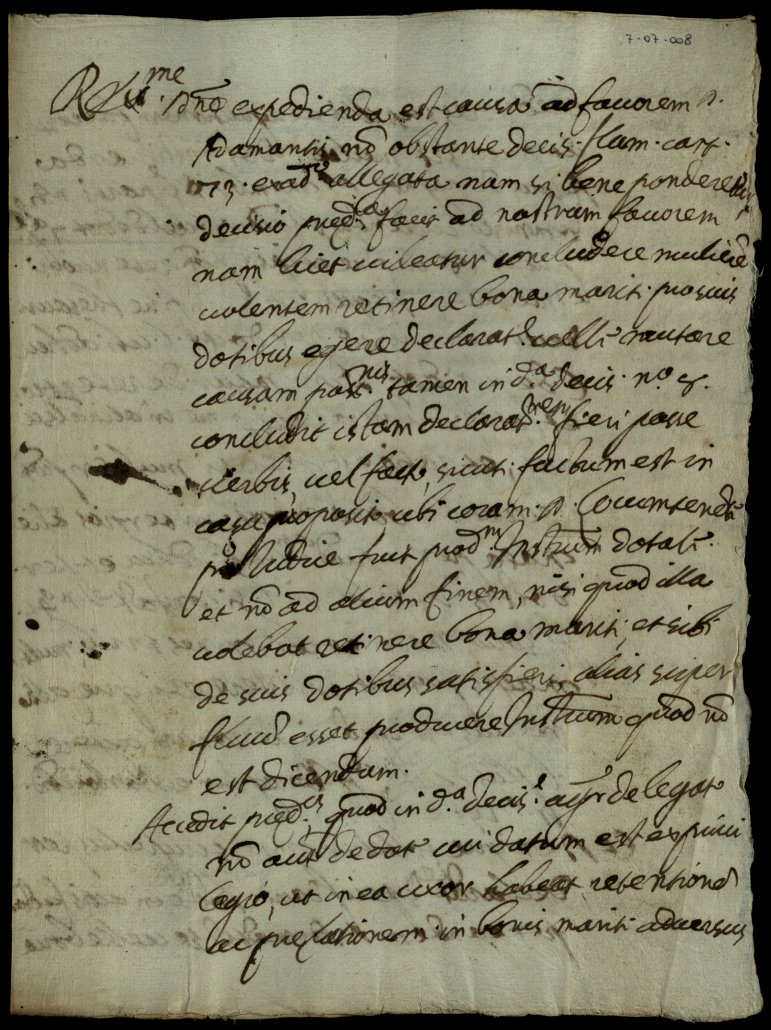 7-07-008
R.me Dne expedienda est causa ad favorem D.
Adamantis nõ obstante decis. flam. cart.
73. ex adv.o allegata nam si bene ponderetur
decisio pred.ta facit ad nostrum favorem
nam licet videatur concludere mulierẽ
volentem retinere bona mariti pro suis
dotibus egere declarat.e velle mutare
causam poss.nis tamen in d.a decis. n.o 5.
concludit istam declarat.nem fieri posse
verbis, vel facto, sicut factum est in
casu proposito ubi coram D. Locumtenẽte
Iudice fuit prod.m Instrum dotale
et nõ ad alium finem, nisi quod illa
volebat retinere bona mariti, et sibi
de suis dotibus satisfieri, alias super
fluũ esset producere Instrum quod nõ
est dicendum.
Accedit pred.is quod in d.a decis.e agitur de legato
nõ aut de dote cui datum est ex privi
legio, ut in ea uxor habeat retentionẽ
ac prelationem in bonis mariti adversus